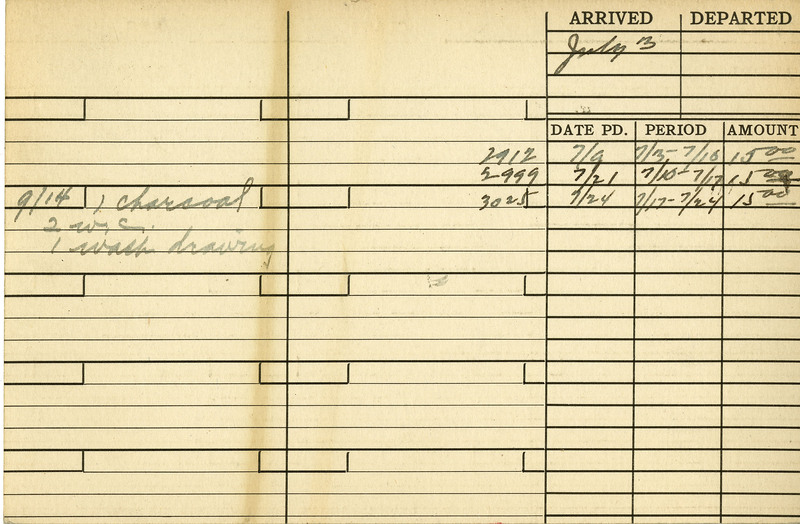 ARRIVED DEPARTED
July 3
DATE PD. PERIOD AMOUNT
2912 7/9 7/3-7/10 15.00
2999 7/21 7/10-7/17 15.00
9/14 1 charcoal 3025 7/24 7/17-7/24 15.00
2 w.c.
1 wash drawing